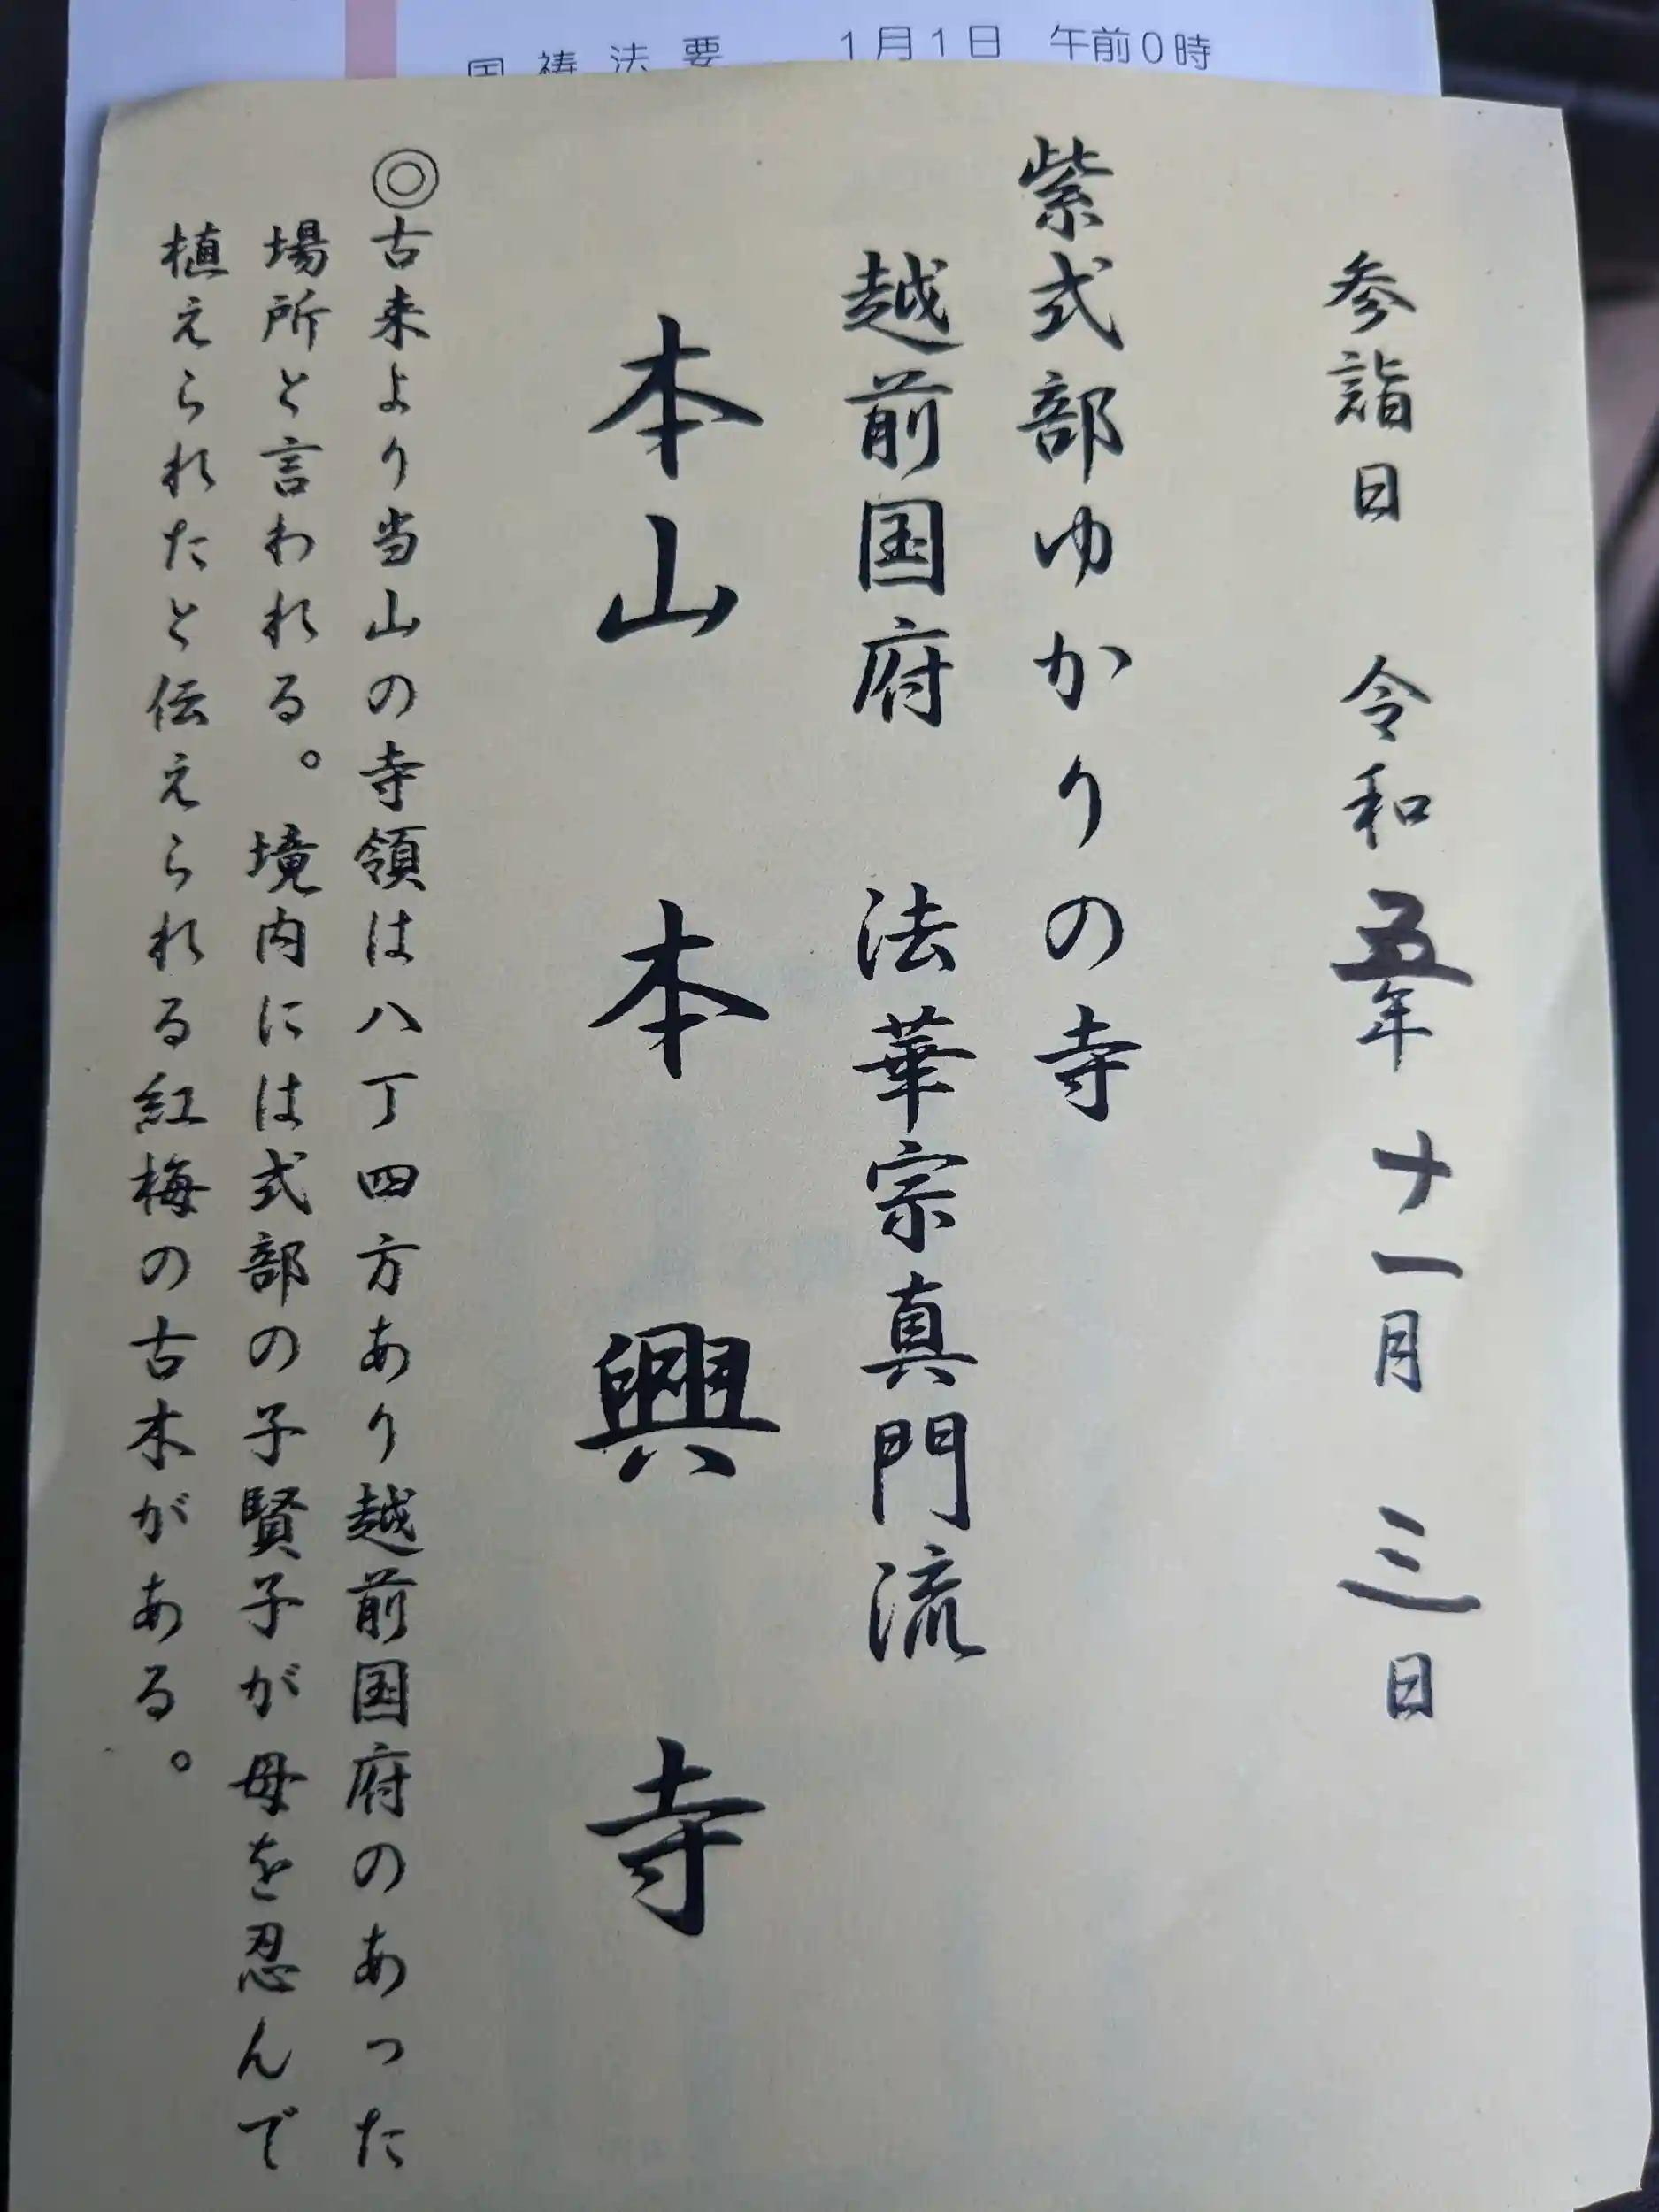 国祷法要　1月1日　午前0時
参詣日　令和五年　十一月　三日
紫式部ゆかりの寺
越前国府　法華宗真門流
本山　本興寺
◎古来より当山の寺領は八丁四方あり越前国府のあった
場所と言われる。境内には式部の子賢子が母を忍んで
植えられたと伝えられる紅梅の古木がある。